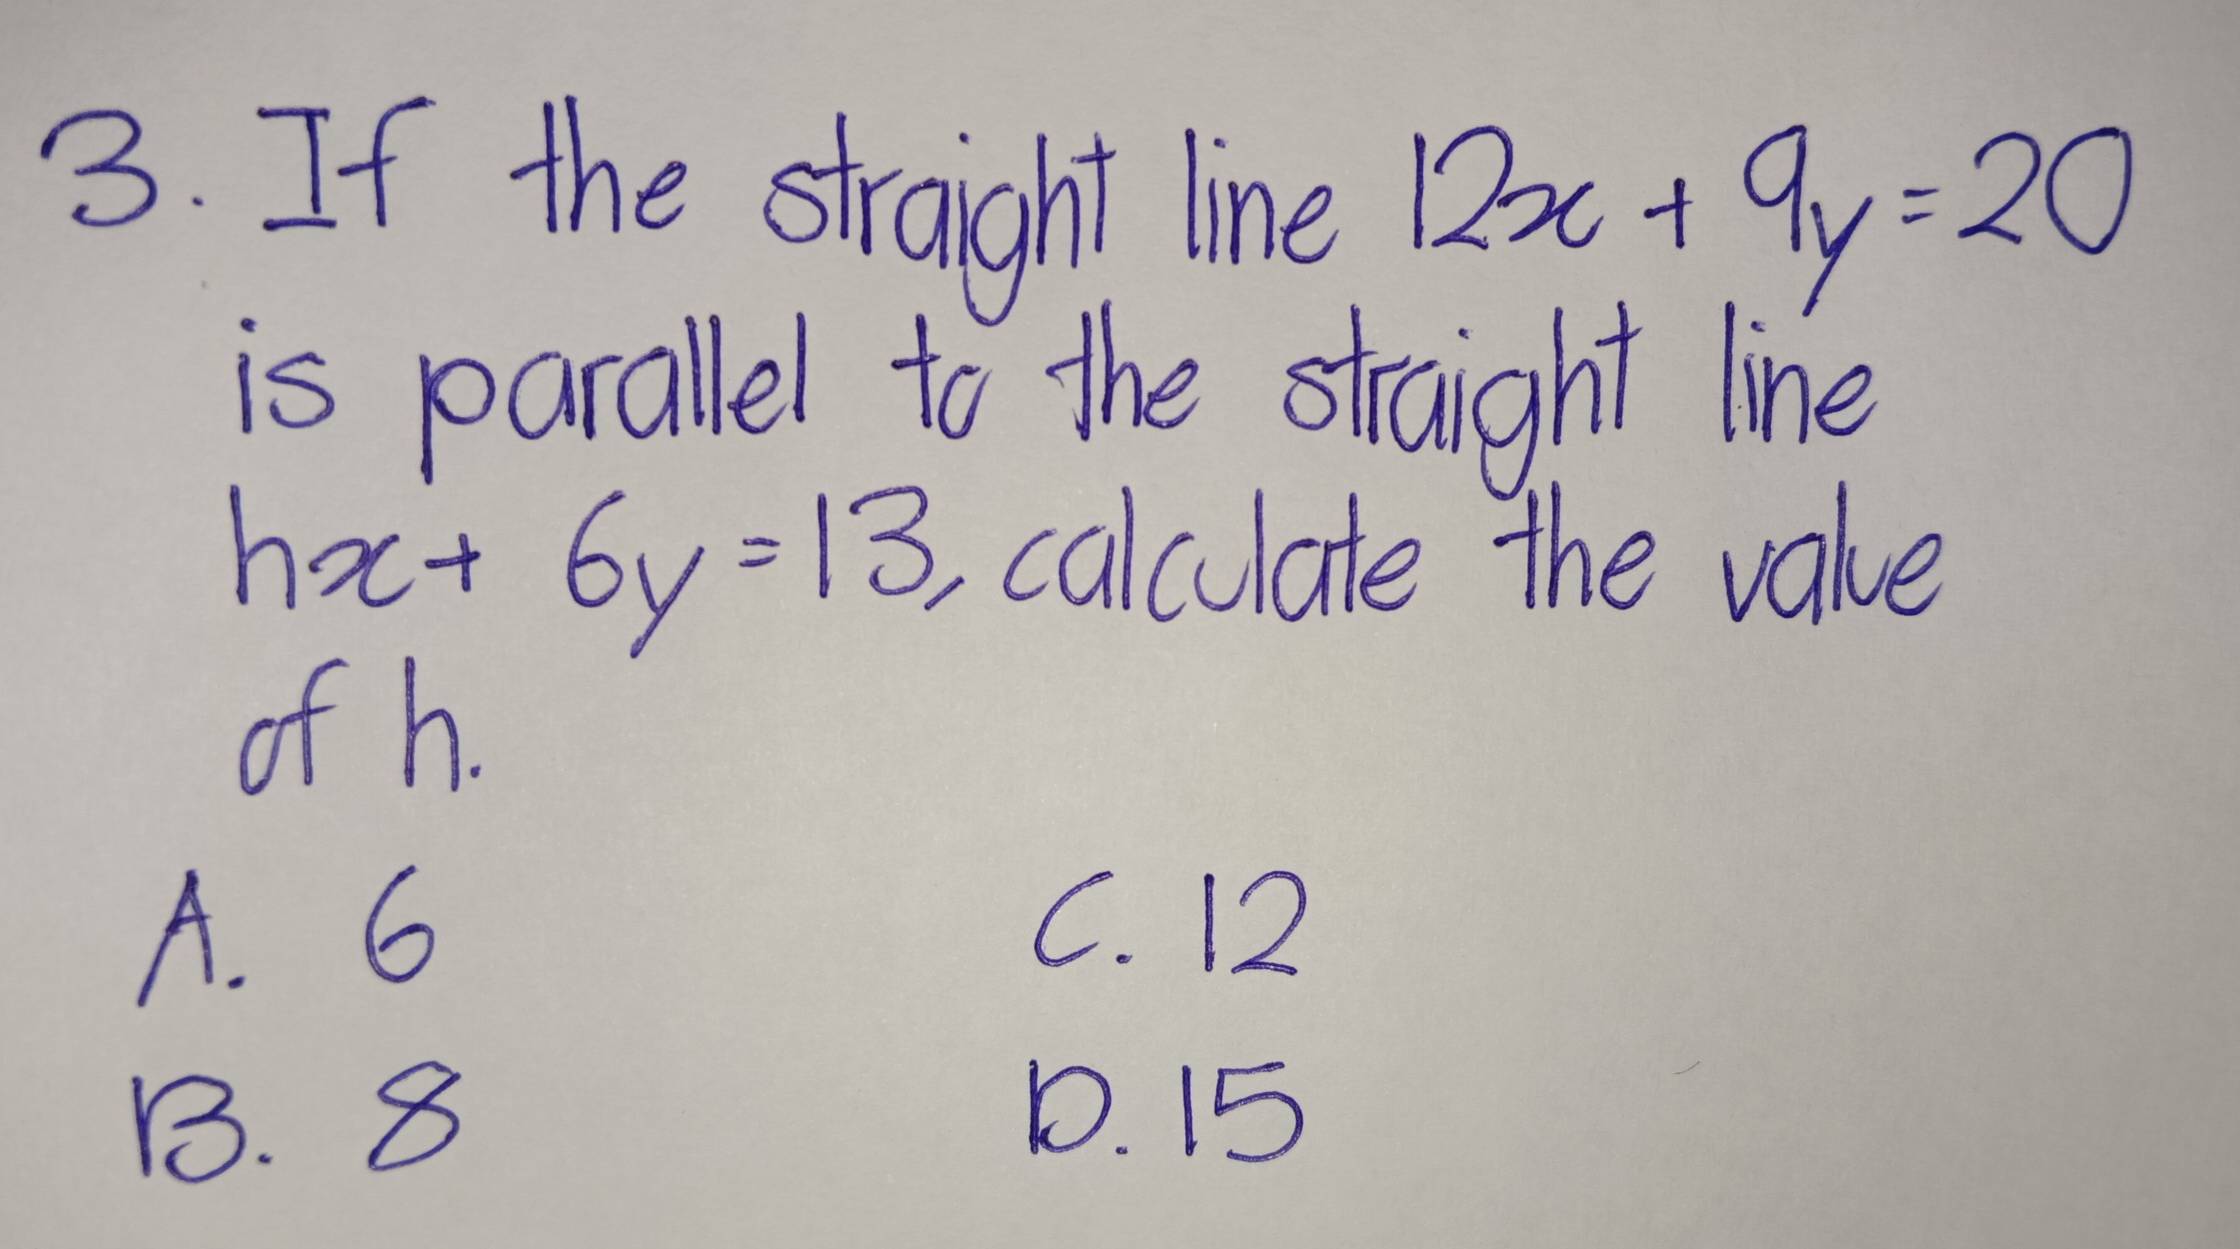 3. If the straight line 12x + 9y = 20
is parallel to the straight line
hx + 6y = 13, calculate the value
of h.
A. 6 C. 12
B. 8 D. 15